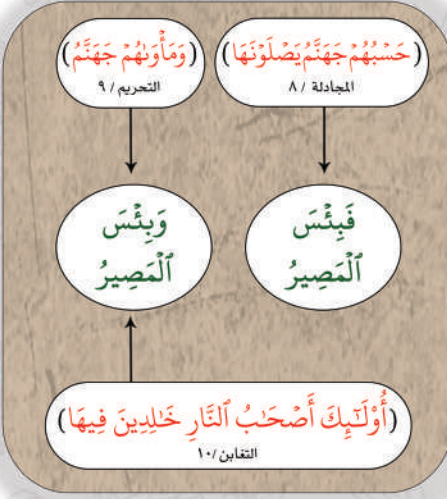 (حَسۡبُهُمۡ جَهَنَّمُ يَصۡلَوۡنَهَا)
المجادلة / ٨
(وَمَأۡوَىٰهُمۡ جَهَنَّمُ)
التحريم / ٩
فَبِئۡسَ
ٱلۡمَصِيرُ
وَبِئۡسَ
ٱلۡمَصِيرُ
(أُوْلَٰٓئِكَ أَصۡحَٰبُ ٱلنَّارِ خَٰلِدِينَ فِيهَا)
التغابن/١٠